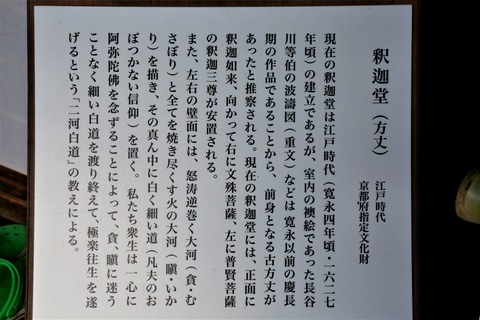 釈迦堂(方丈)
江戸時代
京都府指定文化財
現在の釈迦堂は江戸時代(寛永四年頃・一六二七
年頃)の建立であるが、室内の襖絵であった長谷
川等伯の波濤図(重文)などは寛永以前の慶長
期の作品であることから、前身となる古方丈が
あったと推察される。現在の釈迦堂には、正面に
釈迦如来、向かって右に文殊菩薩、左に普賢菩薩
の釈迦三尊が安置される。
また、左右の壁面には、怒涛逆巻く大河(貪・む
さぼり)と全てを焼き尽くす火の大河(瞋・いか
り)を描き、その真ん中に白く細い道(凡夫のお
ぼつかない信仰)を置く。私たち衆生は一心に
阿弥陀佛を念ずることによって、貪、瞋に迷う
ことなく細い白道を渡り終えて、極楽往生を遂
げるという「二河白道」の教えによる。